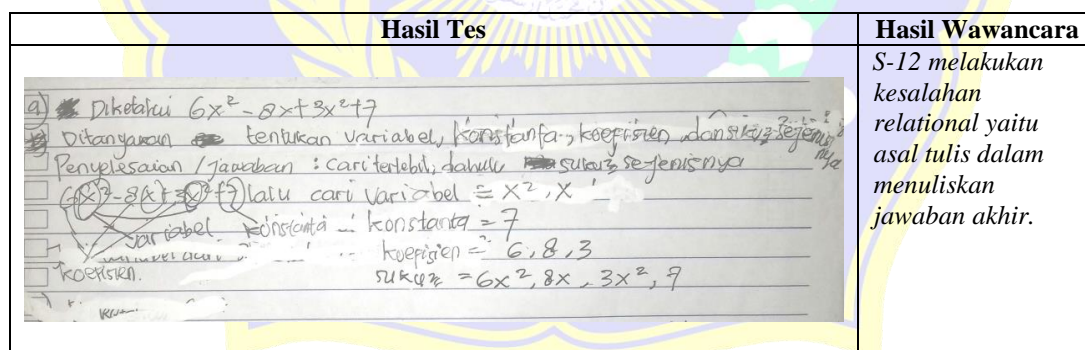 Hasil Tes
Hasil Wawancara
a) Diketahui 6x² - 8x + 3x² + 7
Ditanyakan tentukan variabel, konstanta, koefisien, dan suku² sejenisnya
Penyelesaian / jawaban : cari terlebih dahulu suku² sejenisnya
6x² - 8x + 3x² + 7 lalu cari variabel = x², x
variabel konstanta konstanta = 7
koepisien = 6, 8, 3
koefisien. suku² = 6x², 8x, 3x², 7
S-12 melakukan
kesalahan
relational yaitu
asal tulis dalam
menuliskan
jawaban akhir.